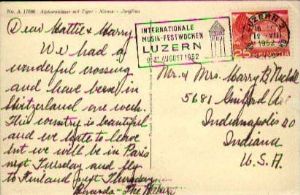 No. A 17096 Alphornbläser mit Tiger - Mönch - Jungfrau
INTERNATIONALE
MUSIK-FESTWOCHEN
LUZERN
AUGUST 1952
LUZERN
1952
25
Dear Hattie & Harry
We had a
wonderful crossing
and have been in
Switzerland one week.
This country is beautiful
and we hate to leave
but we will be in Paris
next Tuesday and fly
to Finland next Thursday
Mr. & Mrs. Harry B.
5681 Guilford Av
Indianapolis 20
Indiana
U.S.A.